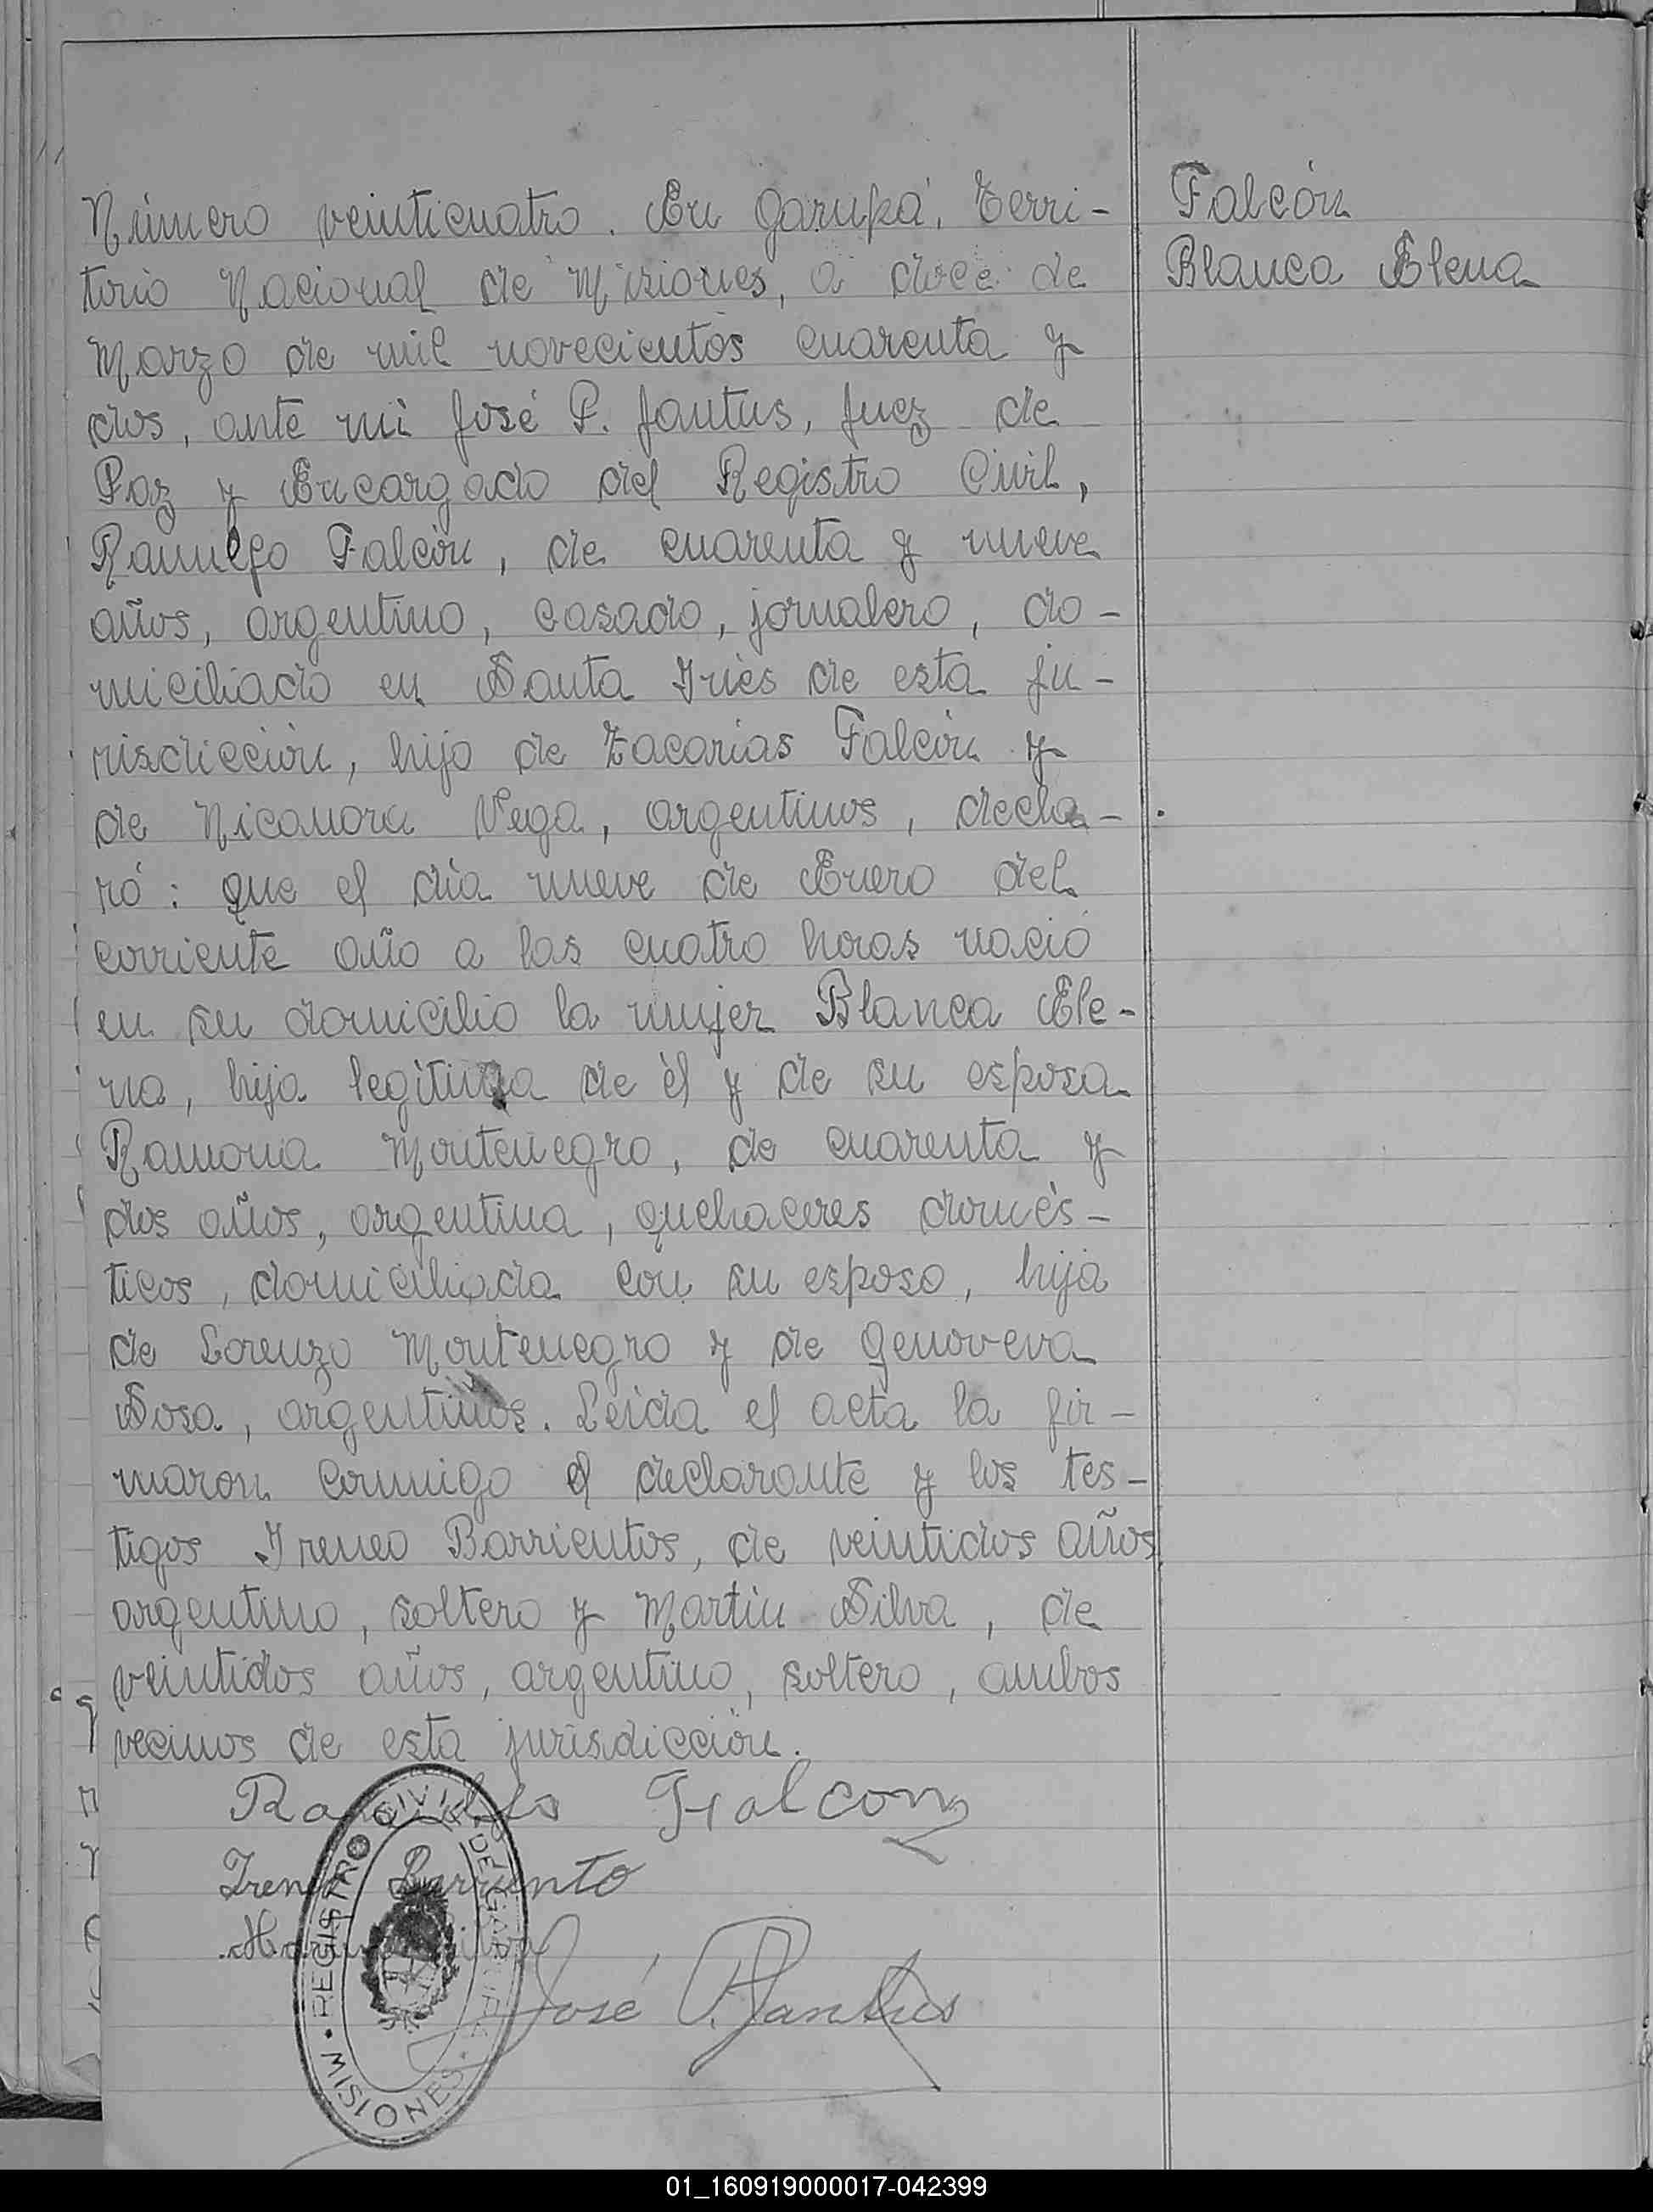 Número veinticuatro. En Garupá, Terri-
torio Nacional de Misiones, a doce de
Marzo de mil novecientos cuarenta y
dos, ante mi José P. Jantus, Juez de
Paz y Encargado del Registro Civil,
Ranulfo Falcón, de cuarenta y nueve
años, argentino, casado, jornalero, do-
miciliado en Santa Inés de esta ju-
risdicción, hijo de Zacarías Falcón y
de Nicanora Vega, argentinos, decla-
ró: que el día nueve de Enero del
corriente año a las cuatro horas nació
en su domicilio la mujer Blanca Ele-
na, hija legítima de él y de su esposa
Ramona Montenegro, de cuarenta y
dos años, argentina, quehaceres domés-
ticos, domiciliada con su esposo, hija
de Lorenzo Montenegro y de Genoveva
Sosa, argentinos. Leída el acta la fir-
maron conmigo el declarante y los tes-
tigos Ireneo Barrientos, de veintidos años
argentino, soltero y Martín Silva, de
veintidos años, argentino, soltero, ambos
vecinos de esta jurisdicción.
Falcón
Blanca Elena
Ranulfo Falcon
Ireneo Barriento
Martin Silva
José P. Jantus
REGISTRO CIVIL DE GARUPA
MISIONES
01_160919000017-042399